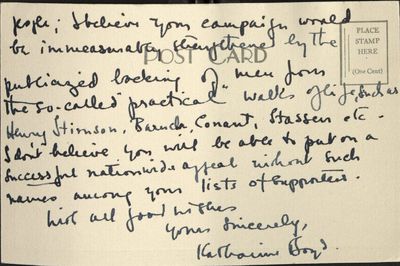 people; I believe your campaign would
be immeasurably strengthened by the
POST CARD
PLACE
STAMP
HERE
(One Cent)
publicized backing of men from
the so-called "practical" walks of life, such as
Henry Stimson, Baruch, Conant, Stassen etc.
I don't believe you will be able to put on a
successful nationwide appeal without such
names among your lists of supporters.
With all good wishes
Yours Sincerely,
Katharine Boyd.